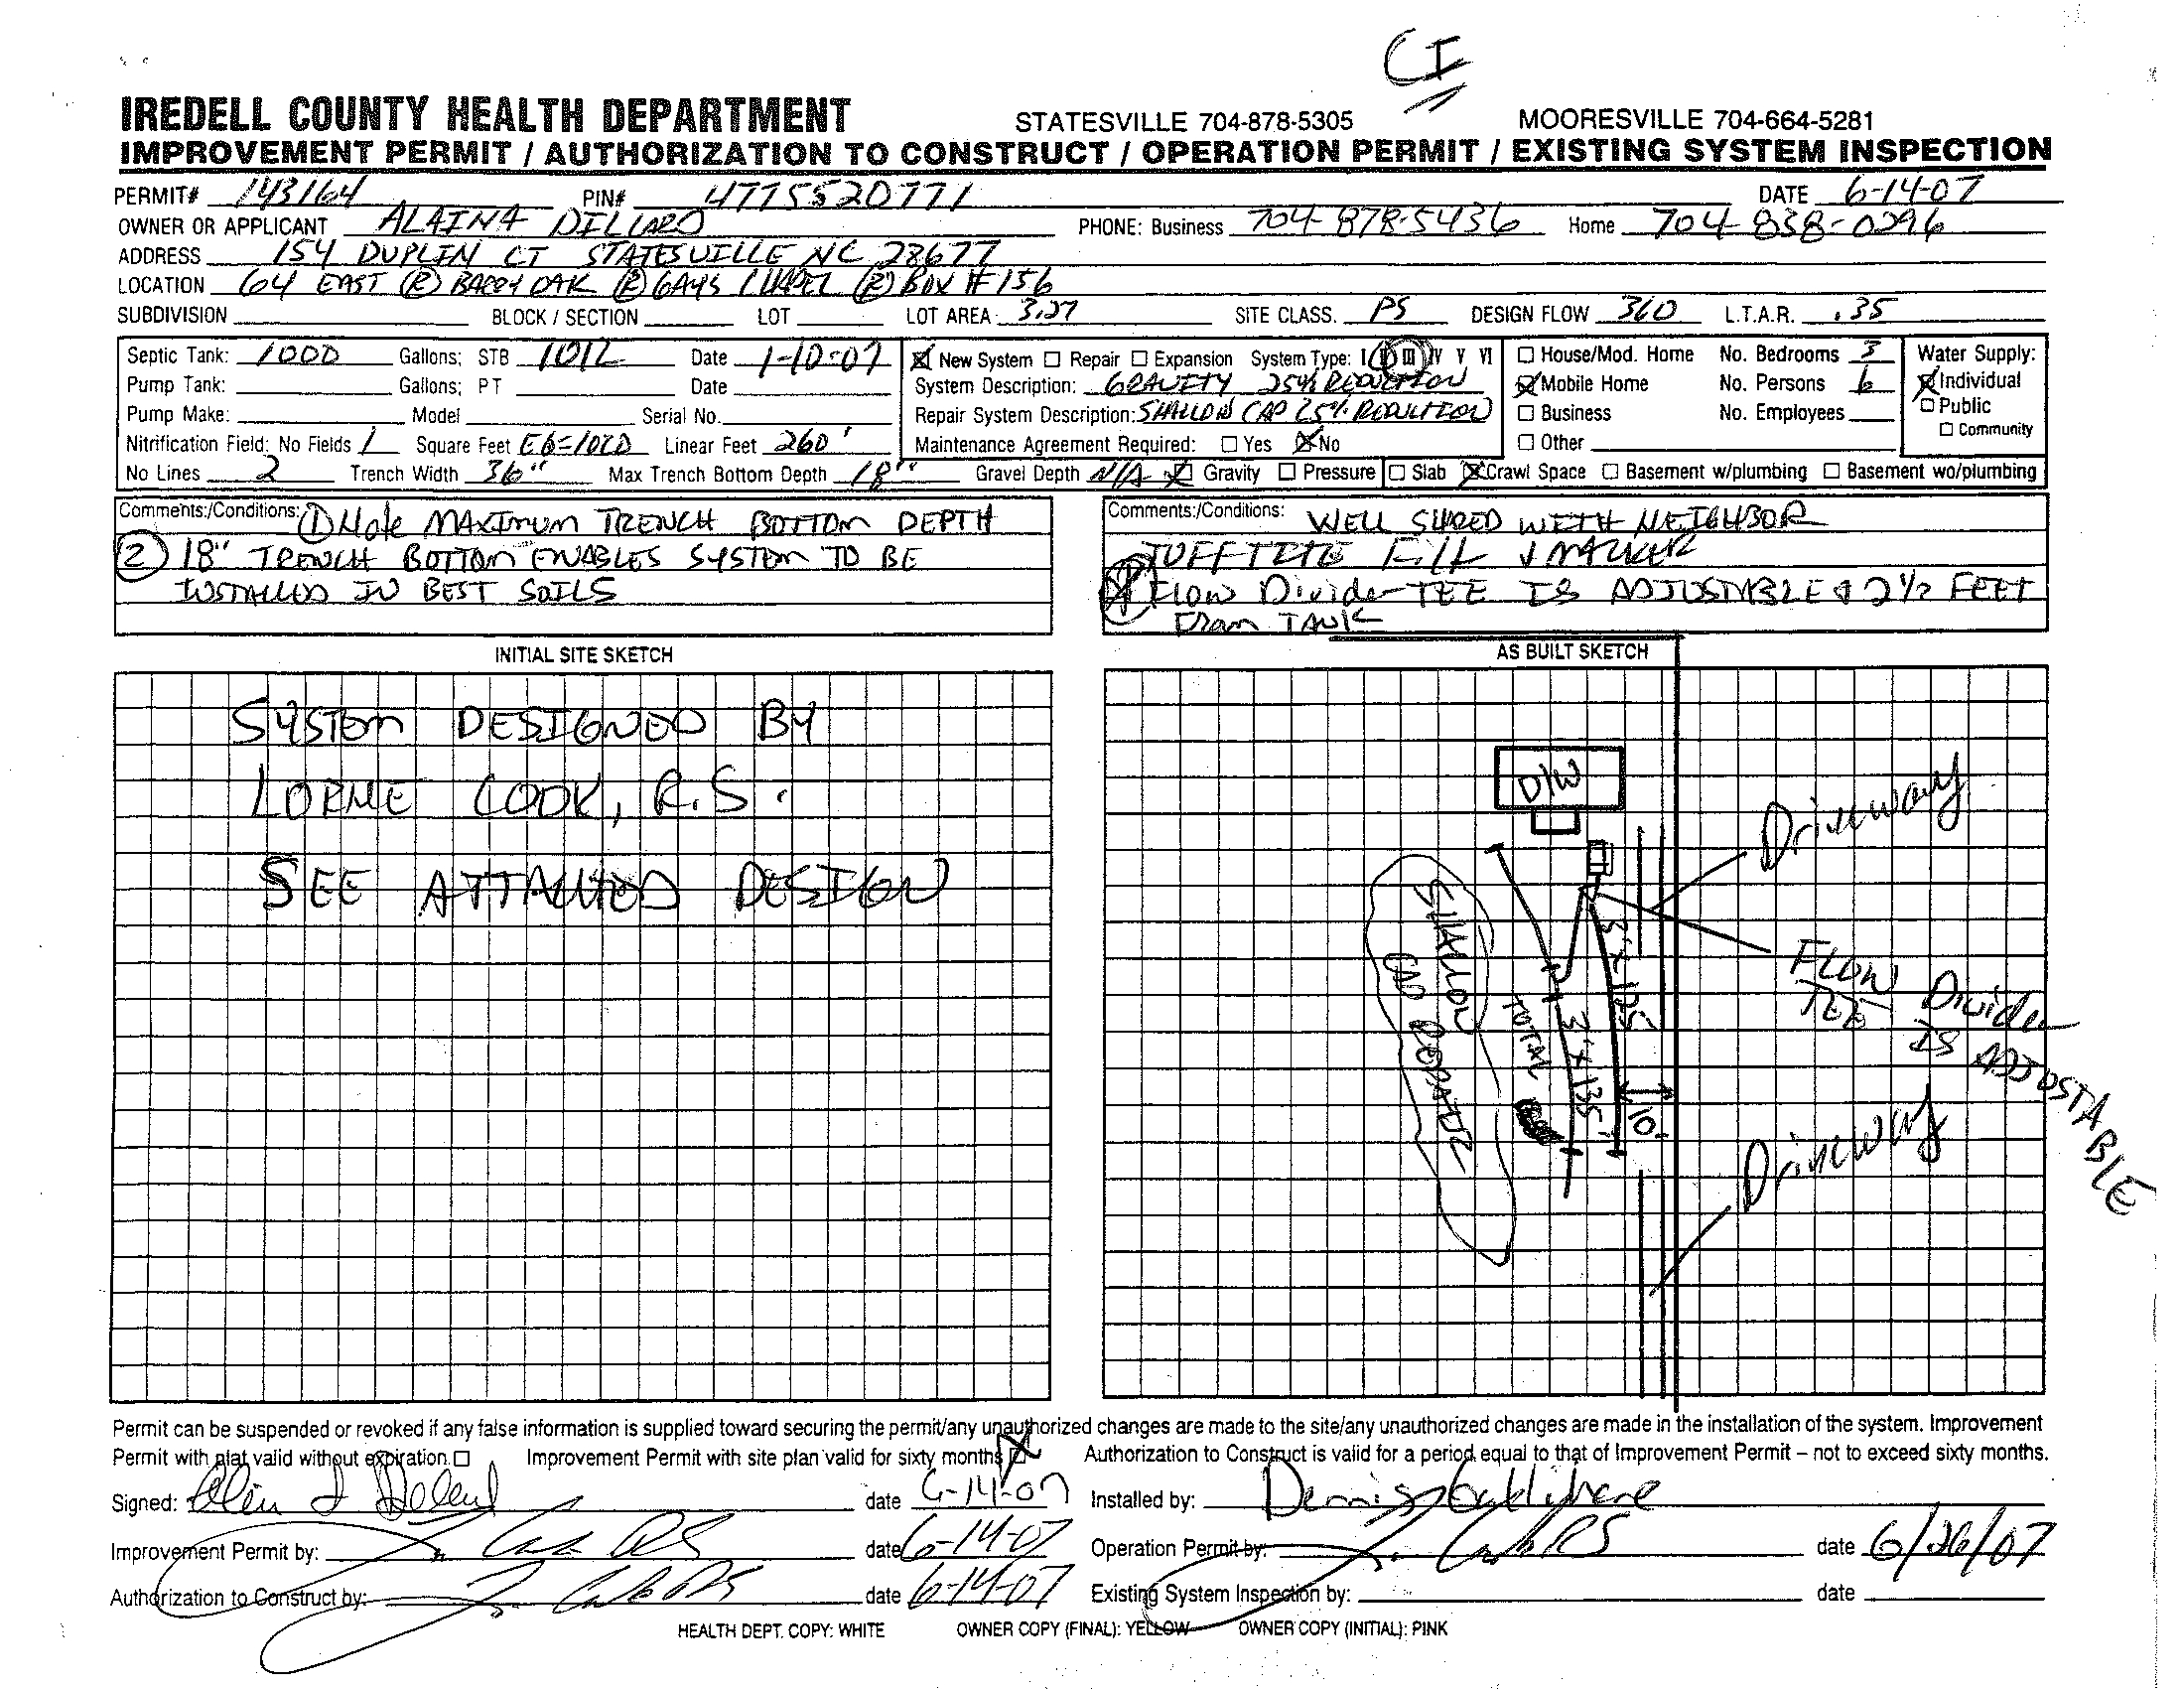 CI
IREDELL COUNTY HEALTH DEPARTMENT STATESVILLE 704-878-5305 MOORESVILLE 704-664-5281
IMPROVEMENT PERMIT / AUTHORIZATION TO CONSTRUCT / OPERATION PERMIT / EXISTING SYSTEM INSPECTION
PERMIT# 143164 PIN# 4775520771 DATE 6-14-07
OWNER OR APPLICANT ALAINA DILLARD PHONE: Business 704-878-5436 Home 704-838-0296
ADDRESS 154 DUPLIN CT STATESVILLE NC 28677
LOCATION 64 EAST (R) BARRY OAK (R) GAYS CHAPEL (R) BOX # 156
SUBDIVISION BLOCK / SECTION LOT LOT AREA 3.27 SITE CLASS. PS DESIGN FLOW 360 L.T.A.R. .35
Septic Tank: 1000 Gallons; STB 1012 Date 1-10-07 New System Repair Expansion System Type: I II III IV V VI House/Mod. Home No. Bedrooms 3 Water Supply:
Pump Tank: Gallons; PT Date System Description: GRAVITY 25% REDUCTION Mobile Home No. Persons 6 Individual
Pump Make: Model Serial No. Repair System Description: SHALLOW CAP 25% REDUCTION Business No. Employees Public
Nitrification Field: No Fields 1 Square Feet Linear Feet 260' Maintenance Agreement Required: Yes No Other Community
No Lines 2 Trench Width 36" Max Trench Bottom Depth 18" Gravel Depth N/A Gravity Pressure Slab Crawl Space Basement w/plumbing Basement wo/plumbing
Comments:/Conditions: ① Note MAXIMUM TRENCH BOTTOM DEPTH
② 18" TRENCH BOTTOM ENABLES SYSTEM TO BE
INSTALLED IN BEST SOILS
Comments:/Conditions: WELL SHARED WITH NEIGHBOR
TUFFTITE Filt & MARKER
Flow Divider TEE IS ADJUSTABLE & 2 1/2 FEET
From TANK
INITIAL SITE SKETCH
SYSTEM DESIGNED BY
LORNE COOK, R.S.
SEE ATTACHED DESIGN
AS BUILT SKETCH
D/W
Driveway
SHALLOW
CAP REPAIR
TOTAL
3' x 125
3' x 135'
10'
FLOW Divider
TEE IS ADJUSTABLE
Driveway
Permit can be suspended or revoked if any false information is supplied toward securing the permit/any unauthorized changes are made to the site/any unauthorized changes are made in the installation of the system. Improvement
Permit with plat valid without expiration. Improvement Permit with site plan valid for sixty months Authorization to Construct is valid for a period equal to that of Improvement Permit – not to exceed sixty months.
Signed: date 6-14-07 Installed by: Dennis
Improvement Permit by: date 6-14-07 Operation Permit by: date 6/26/07
Authorization to Construct by: date 6-14-07 Existing System Inspection by: date
HEALTH DEPT. COPY: WHITE OWNER COPY (FINAL): YELLOW OWNER COPY (INITIAL): PINK